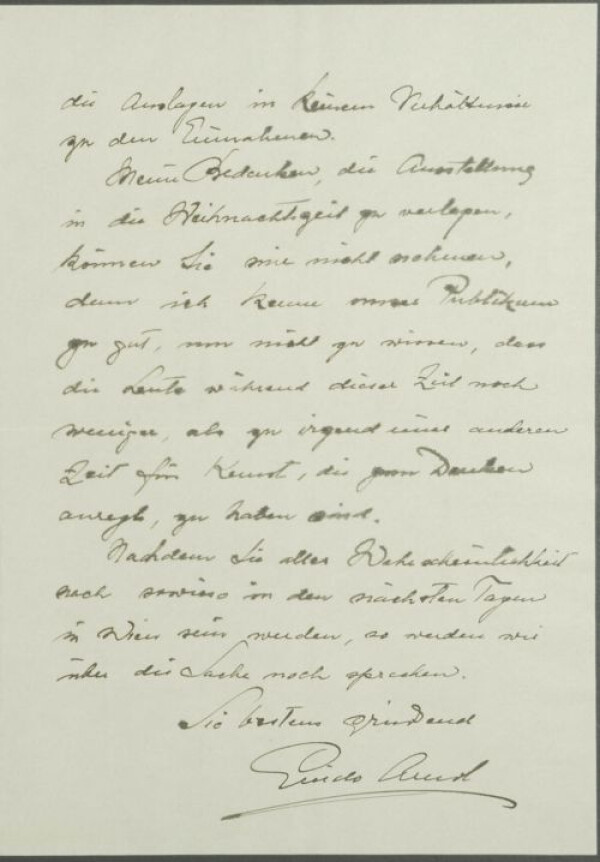 die Auslagen in keinem Verhältnisse
zu den Einnahmen.
Meine Bedenken, die Ausstellung
in die Weihnachtszeit zu verlegen,
können Sie mir nicht nehmen,
denn ich kenne unser Publikum
zu gut, um nicht zu wissen, dass
die Leute während dieser Zeit noch
weniger, als zu irgend einer anderen
Zeit für Kunst, die zum Denken
anregt, zu haben sind.
Nachdem Sie aller Wahrscheinlichkeit
nach sowieso in den nächsten Tagen
in Wien sein werden, so werden wir
über die Sache noch sprechen.
Sie bestens grüssend
Guido Arnot